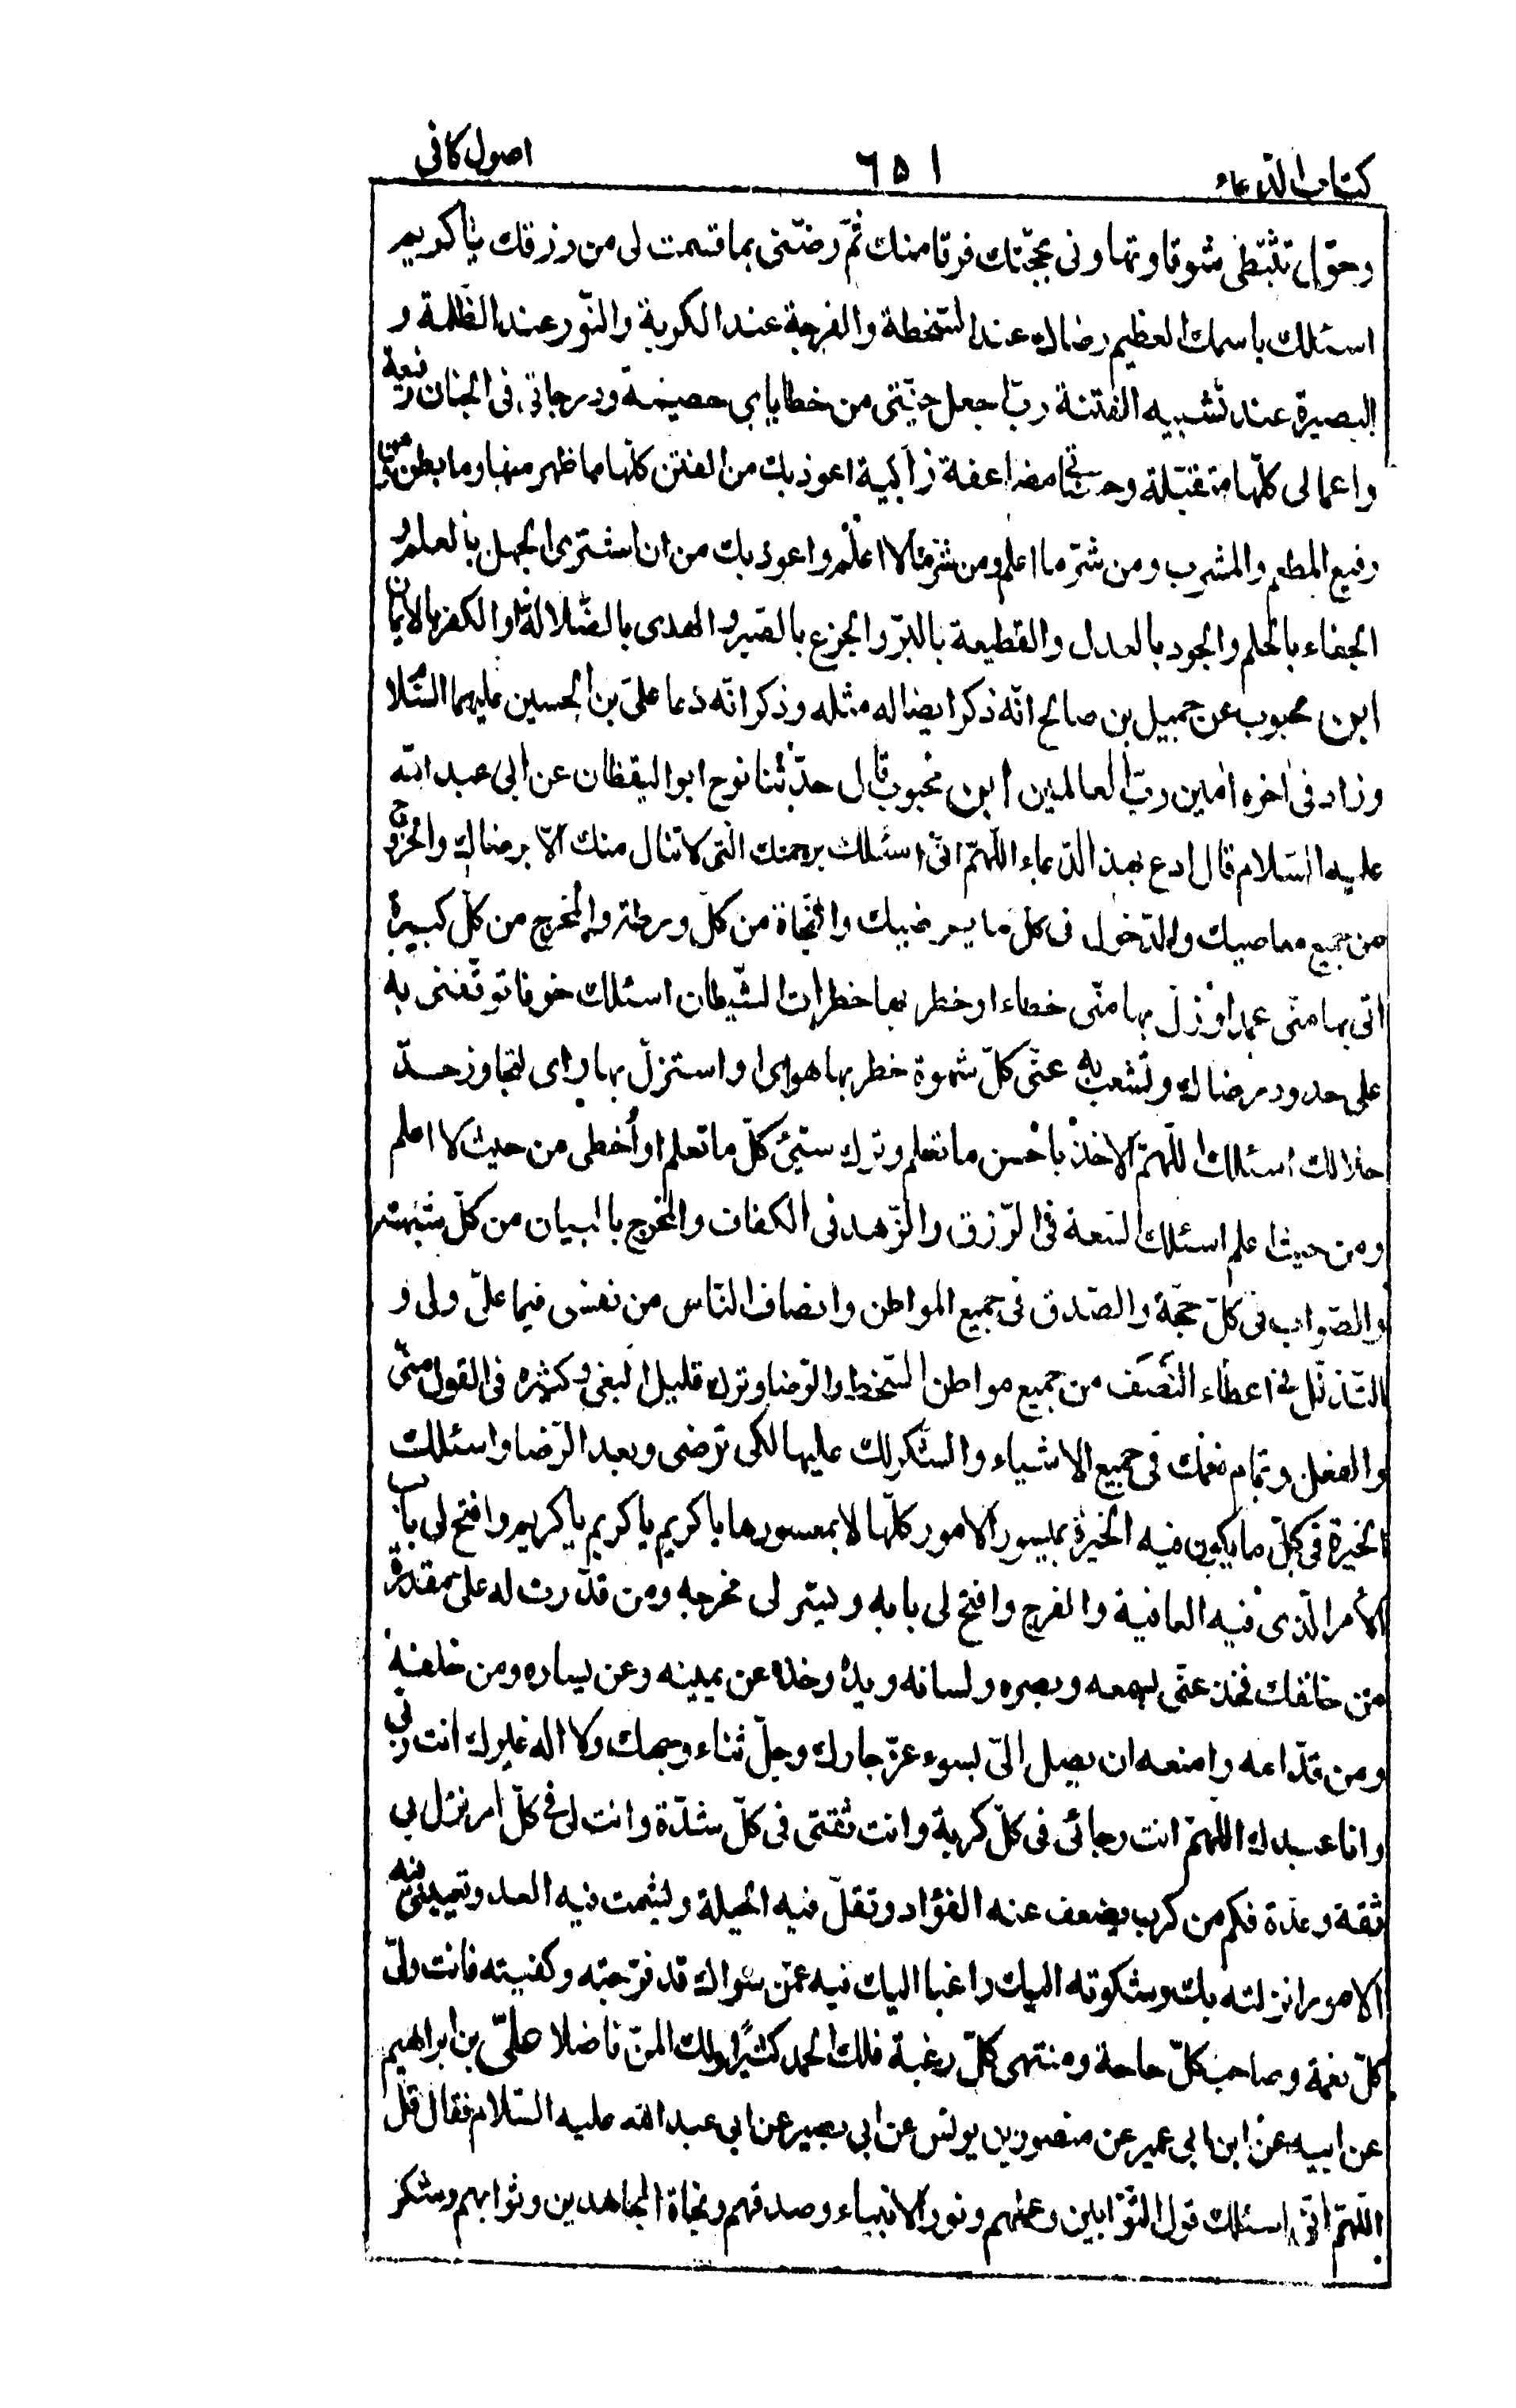 كتاب الدّعاء
٦٥١
اصول كافى
وحوّل تثبّطى شوقا وتهاونى بمحجّتك فرقا منك ثمّ رضّنى بما قسمت لى من رزقك يا كريم
اسئلك باسمك العظيم رضاك عند السّخطة والفرجة عند الكربة والنّور عند الظّلمة و
البصيرة عند تشبيه الفتنة ربّ اجعل جنّتى من خطاياى حصينة ودرجاتى فى الجنان رفيعة
واعمالى كلّها متقبّلة وحسناتى مضاعفة زاكية اعوذ بك من الفتن كلّها ما ظهر منها وما بطن ومن
رفيع المطعم والمشرب ومن شرّ ما اعلم ومن شرّ ما لا اعلم واعوذ بك من ان اشترى الجهل بالعلم و
الجفاء بالحلم والجود بالعدل والقطيعة بالبرّ والجزع بالصّبر والهدى بالضّلالة او الكفر بالايمان
ابن محبوب عن جميل بن صالح انّه ذكر ايضا له مثله وذكر انّه دعا علىّ بن الحسين عليهما السّلام
وزاد فى اخره امين ربّ العالمين ابن محبوب قال حدّثنا نوح ابو اليقظان عن ابى عبد الله
عليه السّلام قال ادع بهذا الدّعاء اللّهمّ انّى اسئلك برحمتك الّتى لا تنال منك الّا برضاك والخروج
من جميع معاصيك والدّخول فى كلّ ما يرضيك والنّجاة من كلّ ورطة والمخرج من كلّ كبيرة
اتى بها منّى عمد او زلّ بها منّى خطاء او خطر بها خطرات الشّيطان اسئلك خوفا توقفنى به
على حدود رضاك وتشعب به عنّى كلّ شهوة خطر بها هواى واستزلّ بها راى لتجاوز حدّ
حلالك اسئلك اللّهمّ الاخذ باحسن ما تعلم وترك سيّئ كلّ ما تعلم او اخطى من حيث لا اعلم
ومن حيث اعلم اسئلك السّعة فى الرّزق والزّهد فى الكفاف والمخرج بالبيان من كلّ شبهة
والصّواب فى كلّ حجّة والصّدق فى جميع المواطن وانصاف النّاس من نفسى فيما علىّ ولى و
التّذلّل فى اعطاء النّصف من جميع مواطن السّخط والرّضا وترك قليل البغى وكثيره فى القول منّى
والفعل وتمام نعمك فى جميع الاشياء والشّكر لك عليها لكى ترضى وبعد الرّضا واسئلك
الخيرة فى كلّ ما يكون فيه الخيرة بميسور الامور كلّها لا بمعسورها يا كريم يا كريم يا كريم وافتح لى باب
الأمر الّذى فيه العافية والفرج وافتح لى بابه ويسّر لى مخرجه ومن قدّرت له علىّ مقدرة
من خلقك فخذ عنّى بسمعه وبصره ولسانه ويده وخذه عن يمينه وعن يساره ومن خلفه
ومن قدّامه وامنعه ان يصل الىّ بسوء عزّ جارك وجلّ ثناء وجهك ولا اله غيرك انت ربّى
وانا عبدك اللّهمّ انت رجائى فى كلّ كربة وانت ثقتى فى كلّ شدّة وانت لى فى كلّ امر نزل بى
ثقة وعدّة فكم من كرب يضعف عنه الفؤاد وتقلّ فيه الحيلة ويشمت فيه العدو وتعيينى فيه
الامور انزلته بك وشكوته اليك راغبا اليك فيه عمّن سواك قد فرّجته وكفيته فانت ولىّ
كلّ نعمة وصاحب كلّ حاجة ومنتهى كلّ رغبة فلك الحمد كثيرًا ولك المنّ فاضلا علىّ بن ابراهيم
عن ابيه عن ابن ابى عمير عن منصور بن يونس عن ابى بصير عن ابى عبد الله عليه السّلام فقال قل
اللّهمّ انّى اسئلك قول التّوّابين وعملهم ونور الانبياء وصدقهم ونجاة المجاهدين وثوابهم وشكر